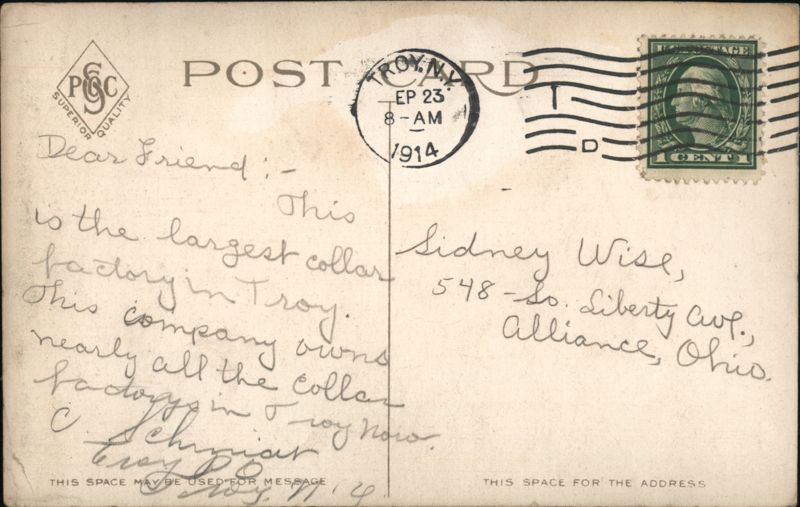 PSGC
SUPERIOR QUALITY
POST CARD
TROY, N.Y.
EP 23
8-AM
1914
T
D
U.S. POSTAGE
1 CENT 1
Dear Friend:-
This
is the largest collar
factory in Troy.
This company owns
nearly all the collar
factorys in Troy now.
C. Schmidt
Troy
Troy, N.Y.
THIS SPACE MAY BE USED FOR MESSAGE
Sidney Wise,
548-So. Liberty Ave.,
Alliance, Ohio.
THIS SPACE FOR THE ADDRESS